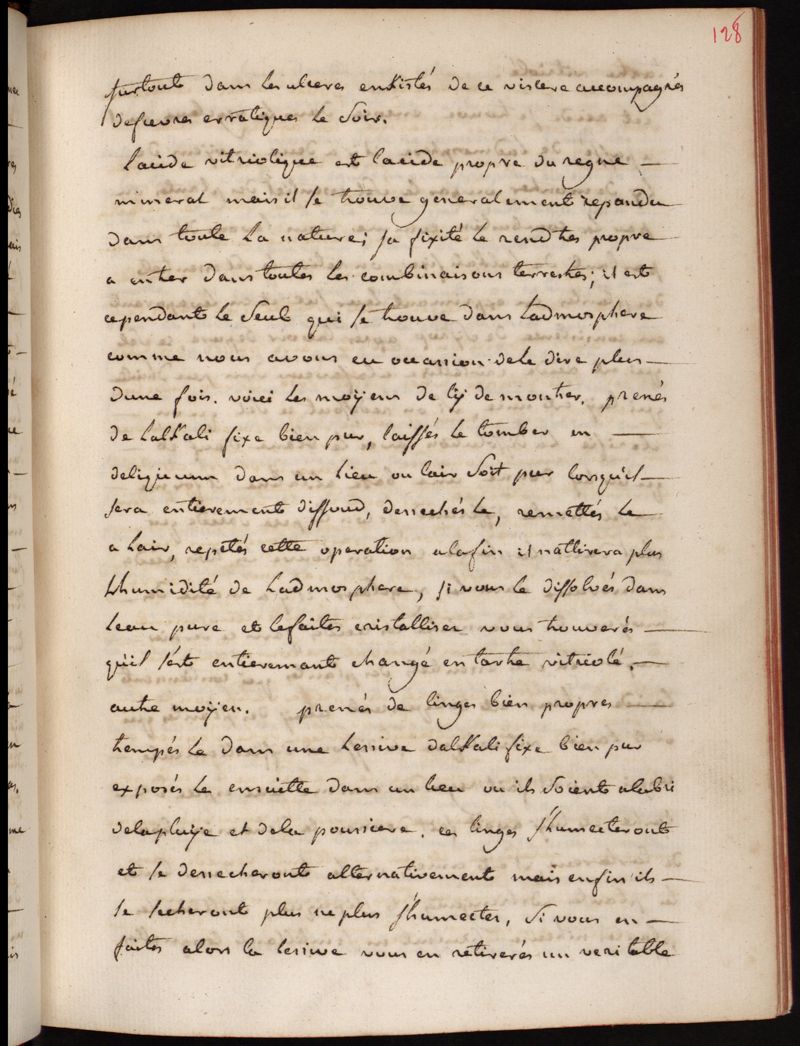 128
surtout dans les ulceres enkistés de ce viscere accompagnés
de fievres erratiques le soir.
lacide vitriolique est lacide propre du regne —
mineral mais il se trouve generalement repandu
dans toute la nature; sa fixité le rend tres propre
a entrer dans toutes les combinaisons terrestres; il est
cependant le seul qui se trouve dans ladmosphere
comme nous avons eu occassion de le dire plus —
dune fois. voici les moÿens de lÿ demontrer. prenés
de lalkali fixe bien pur, laissés le tomber en —
deliquium dans un lieu ou lair soit pur lorsquil —
sera entierement dissoud, dessechés le, remettés le
a lair, repetés cette operation alafin il nattirera plus
lhumidité de ladmosphere, si vous le dissolvés dans
leau pure et lefaites cristalliser vous trouverés —
quil sest entierement changé en tartre vitriolé. —
autre moÿen. prenés de linges bien propres —
trempés le dans une lessive dalkali fixe bien pur
exposés le ensuitte dans un lieu ou ils soient alabri
delapluÿe et dela poussiere. ces linges shumecteront
et se dessecheront alternativement mais enfin ils —
se secheront plus ne plus shumecter, si vous en —
faites alors la lessive vous en retirerés un veritable